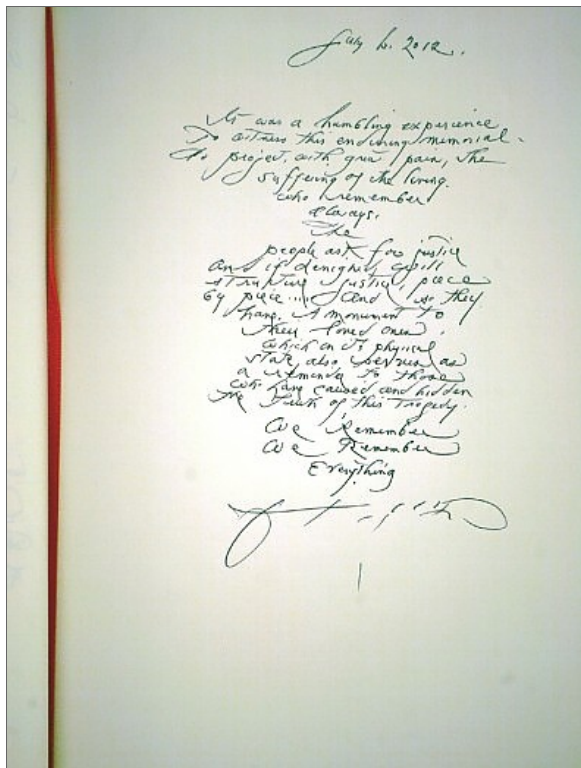 July 6. 2012.
It was a humbling experience
To witness this enduring memorial.
To project, with great pain, the
suffering of the living.
who remember
always.
The
people ask for justice
And if denighed, will
structure justice, piece
by piece..... And so they
hang. A monument to
their loved ones.
which in its physical
state also serves as
a reminder to those
who have caused and hidden
the Truth of this Tragedy.
We Remember
We Remember
Everything